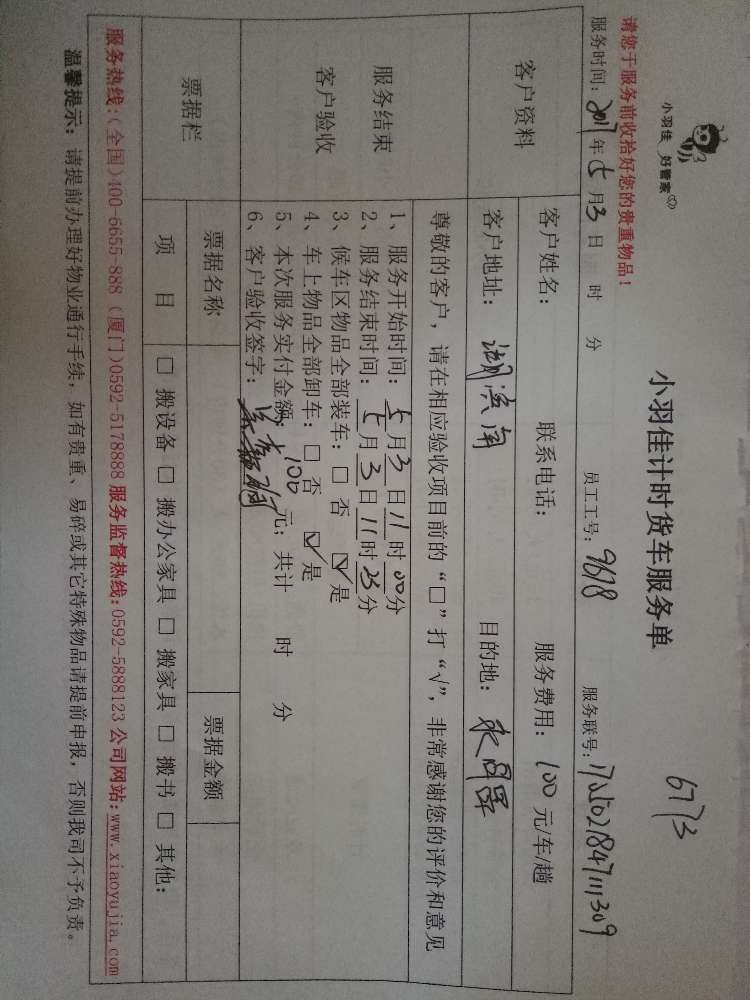 小羽佳 好管家
小羽佳计时货车服务单
6773
请您于服务前收拾好您的贵重物品！
服务时间：2017年5月3日 时 分 员工工号：9618 服务联号：
客户资料
客户姓名： 联系电话： 服务费用：100元/车/趟
客户地址：湖滨南 目的地：
服务结束
客户验收
尊敬的客户，请在相应验收项目前的“□”打“√”，非常感谢您的评价和意见
1、服务开始时间：5月3日11时00分
2、服务结束时间：5月3日11时25分
3、候车区物品全部装车：□ 否 ☑ 是
4、车上物品全部卸车：□ 否 ☑ 是
5、本次服务实付金额：100元；共计 时 分
6、客户验收签字：
票据栏
票据名称 票据金额
项 目 □ 搬设备 □ 搬办公家具 □ 搬家具 □ 搬书 □ 其他：
服务热线：(全国)400-6655-888 (厦门)0592-5178888 服务监督热线：0592-5888123 公司网站：www.xiaoyujia.com
温馨提示：请提前办理好物业通行手续，如有贵重、易碎或其它特殊物品请提前申报，否则我司不予负责。